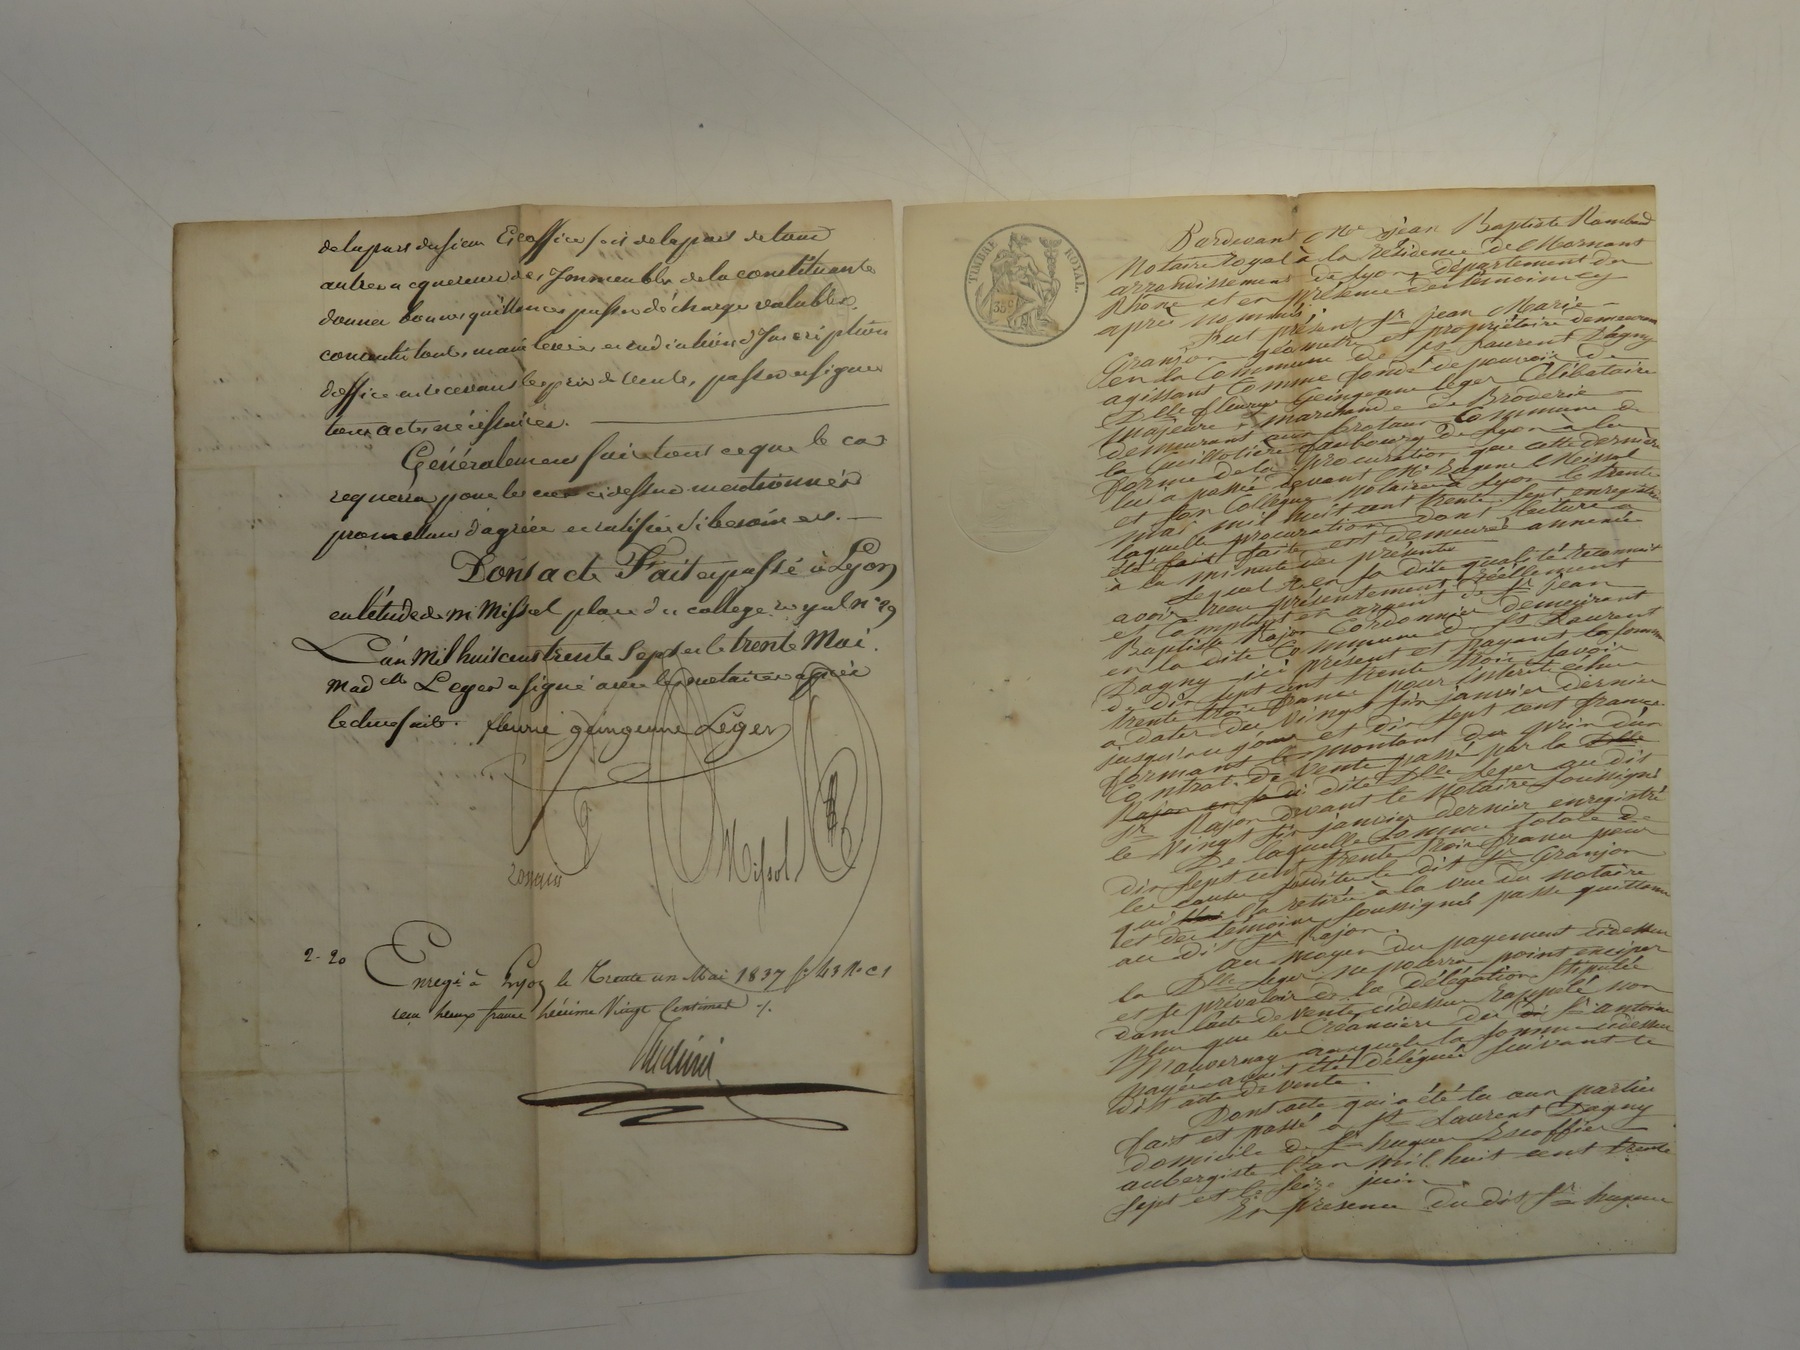 de la part du sieur Escoffier soit de la part de tous
autres acquereurs des Immeubles de la constituante
donner bonnes quittances passer décharges valables,
consentir toutes main levées et radiations d'Inscriptions
d'office en recevant les prix de vente, passer et signer
tous actes nécéssaires.
Généralement faire tout ce que le cas
requerra pour les cas cidessus mentionnés
promettant d'agréer et ratifier si besoin est.
Dont acte Fait et passé à Lyon
en l'étude de m Missol place du college royal n° 29
L'an Mil huit cent trente Sept et le trente Mai.
Mad lle Leger a signé avec les notaires après
lecture faite. fleurie geingenne Léger
Missol
2-20
Enregé à Lyon le Trente un Mai 1837 f° 43 R° C 1
reçu deux francs décime Vingt Centimes
TIMBRE ROYAL.
35 c
Pardevant Me jean Baptiste Rambaud
Notaire royal à la résidence de Mornant
arrondissement de Lyon, département du
Rhône et en présence des temoins cy
après nommés
fut présent Sr jean Marie
Granjon géometre et propriétaire demeurant
en la Commune de St Laurent Dagny
agissant Comme fondé de pouvoir de
Dlle fleurye Geingenne Leger Célibataire
majeure marchande de Broderie
demeurant aux brotaux Commune de
la Guillotière faubourg de Lyon à la
forme de la procuration que cette dernière
lui a passée devant Me Missol
et son Collègue Notaires à Lyon le trente
mai mil huit cent trente sept enregistrée
laquelle procuration dont lecture a
été fait faite est demeurée annexée
à la minute des présentes
Lequel Sr en sa dite qualité reconnait
avoir reçu présentement réellement
et Comptant en argent de Sr jean
Baptiste Rajon Cordonnier demeurant
en la dite Commune de St Laurent
Dagny ici présent et payant la somme
de dix sept cent trente trois savoir
trente trois francs pour l'intérêt échu
à dater du vingt six janvier dernier
jusqu'au à ce jour et dix sept cent francs
formant le montant du prix d'un
Contrat de vente passé par la Dlle
Rajon en sa di dite Dlle Leger au dit
Sr Rajon devant le Notaire soussigné
le vingt six janvier dernier enregistré
De laquelle Somme totale de
dix sept cent trente trois francs pour
les causes susdites le dit Sr Granjon
qui l'a retirée à la vue du notaire
et des témoins soussignés passe quittance
au dit Sr Rajon.
au moyen du payement cidessus
la Dlle Leger ne pourra point exciper
et se prévaloir de la délégation stipulée
dans l'acte de vente cidessus rappelé non
plus que les Créanciers du Sr antoine
auxquels la somme cidessus
payée avait été déléguée suivant le
dit acte de vente.
Dont acte qui a été lu aux parties
fait et passé à St Laurent Dagny
domicile de Sr hugues Escoffier
aubergiste l'an mil huit cent trente
sept et le seize juin
En présence du dit Sr hugues